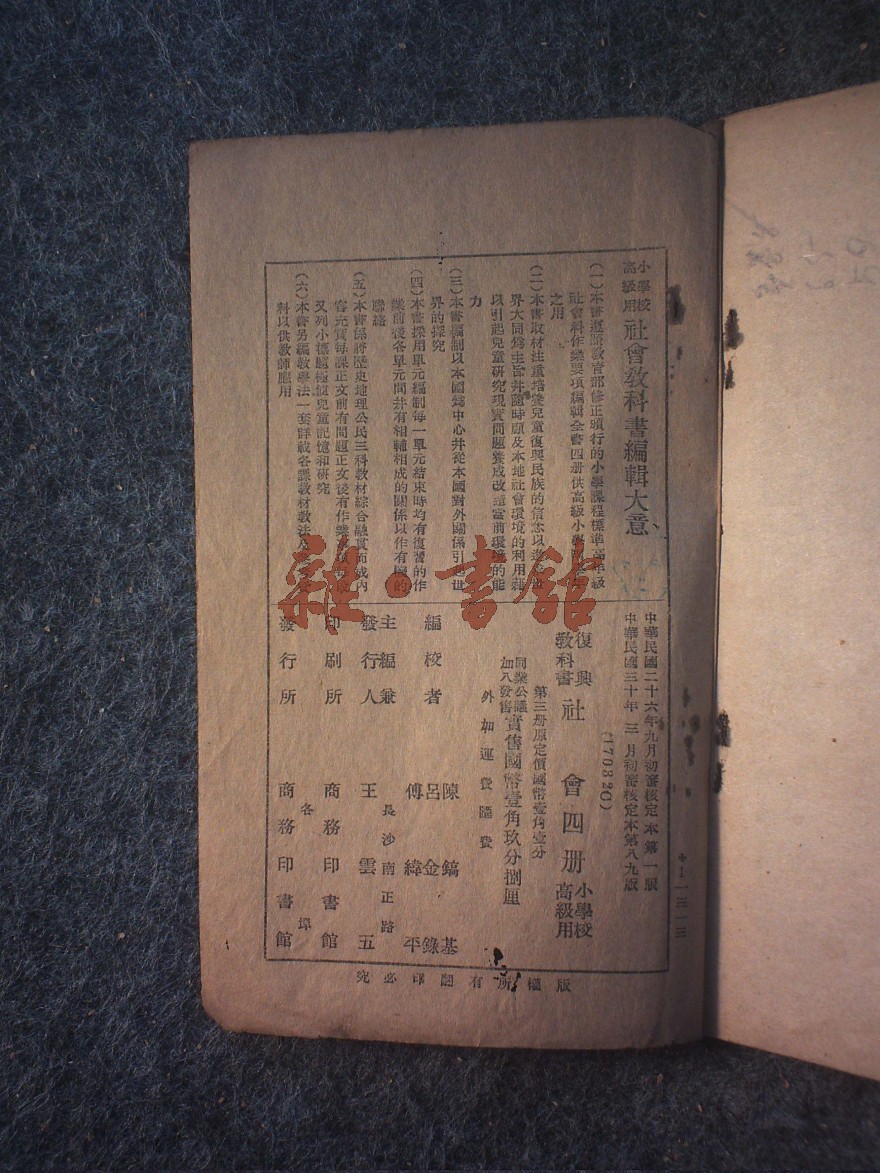 小學校
高級用
社會敎科書編輯大意
(一)本書遵照教育部修正頒行的小學課程標準高年級
社會科作業要項編輯全書四册供高級小學
之用
(二)本書取材注重培養兒童復興民族的信念以
界大同爲主旨并隨時顧及本地社會環境的利用藉
以引起兒童研究現實問題養成改造當前環境的能
力
(三)本書編制以本國爲中心并從本國對外關係引起世
界的探究
(四)本書採用單元編制每一單元結束時均有復習的作
業前後各單元間并有相輔相成的關係以作有機的
聯絡
(五)本書係將歷史地理公民三科教材綜合融貫而成內
容充實每課正文前有問題正文後有作業要項每段
又列小標題極便兒童記憶和研究
(六)本書另編敎學法一套詳載各課敎材敎法及
料以供敎師應用
中華民國二十六年九月初審核定本第一版
中華民國三十年三月初審核定本第八九版
(17032C)
復興
敎科書
社會四册
小學校
高級用
第三册原定價國幣壹角壹分
同業公議
加八發售
實售國幣壹角玖分捌厘
外加運費匯費
編校者
陳鎬基
呂金錄
傅緯平
主編兼
發行人
長沙南正路
王雲五
印刷所
商務印書館
各埠
發行所
商務印書館
版權所有翻印必究
雜·書館